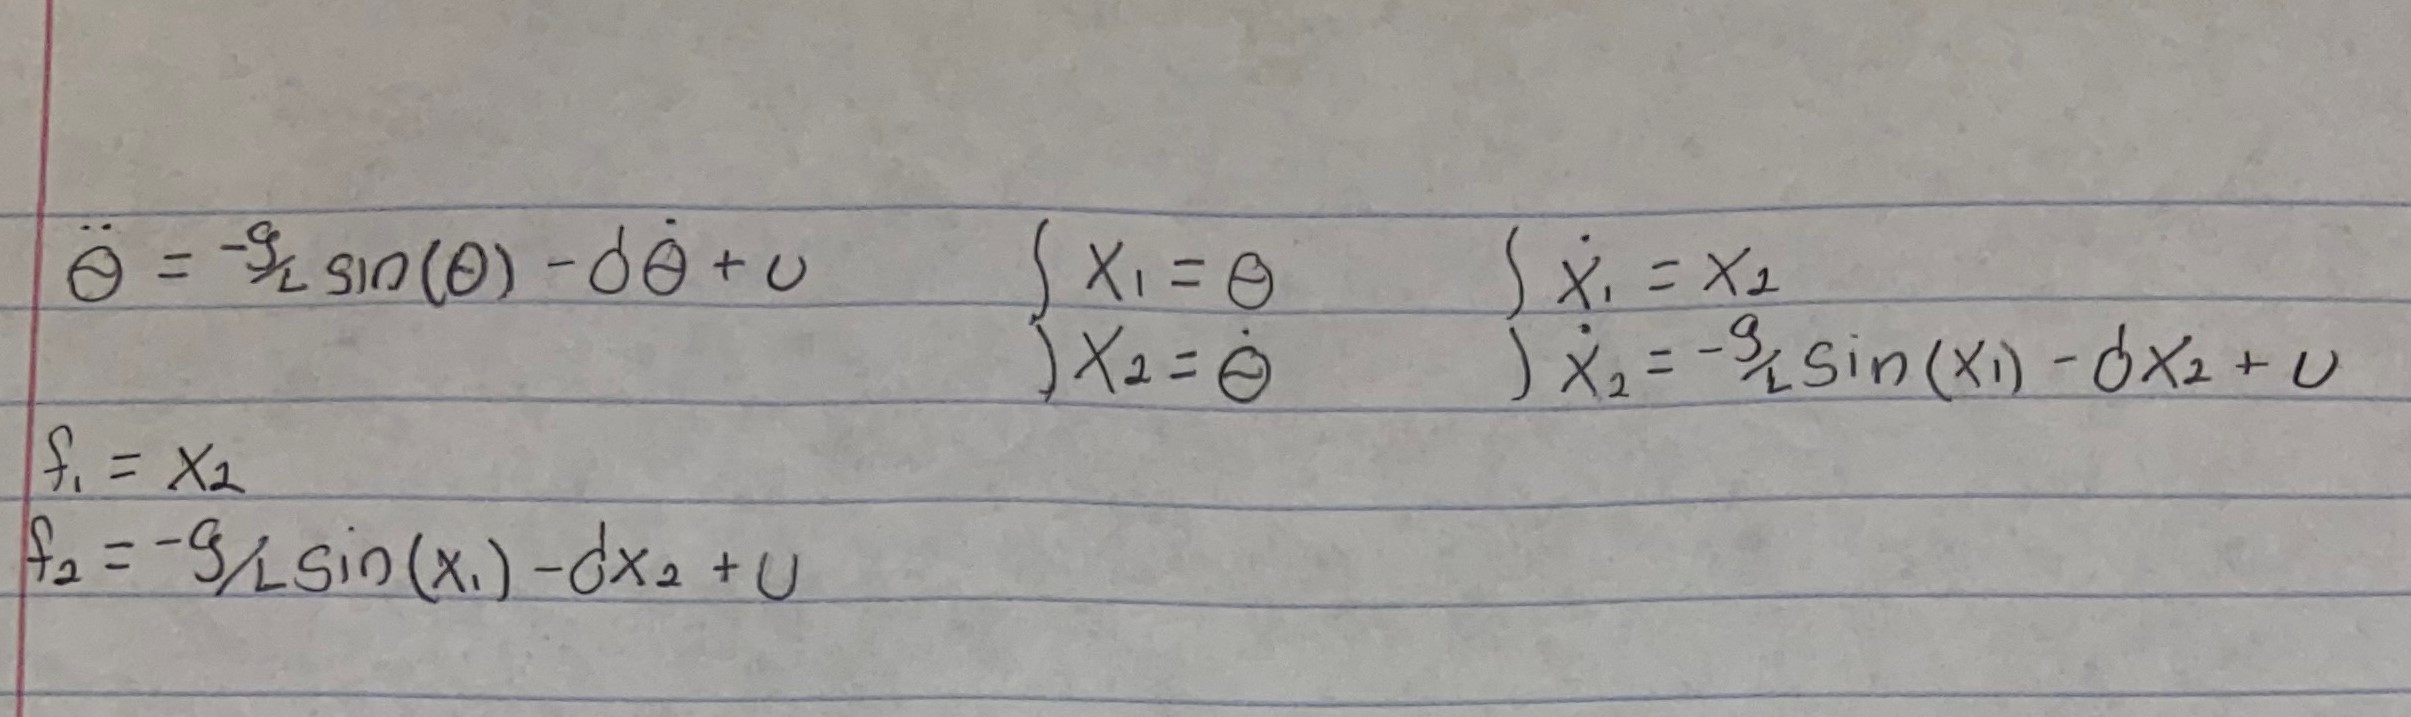 θ̈ = -g/L sin(θ) - dθ̇ + u { x₁ = θ { ẋ₁ = x₂
x₂ = θ̇ ẋ₂ = -g/L sin(x₁) - dx₂ + u
f₁ = x₂
f₂ = -g/L sin(x₁) - dx₂ + u